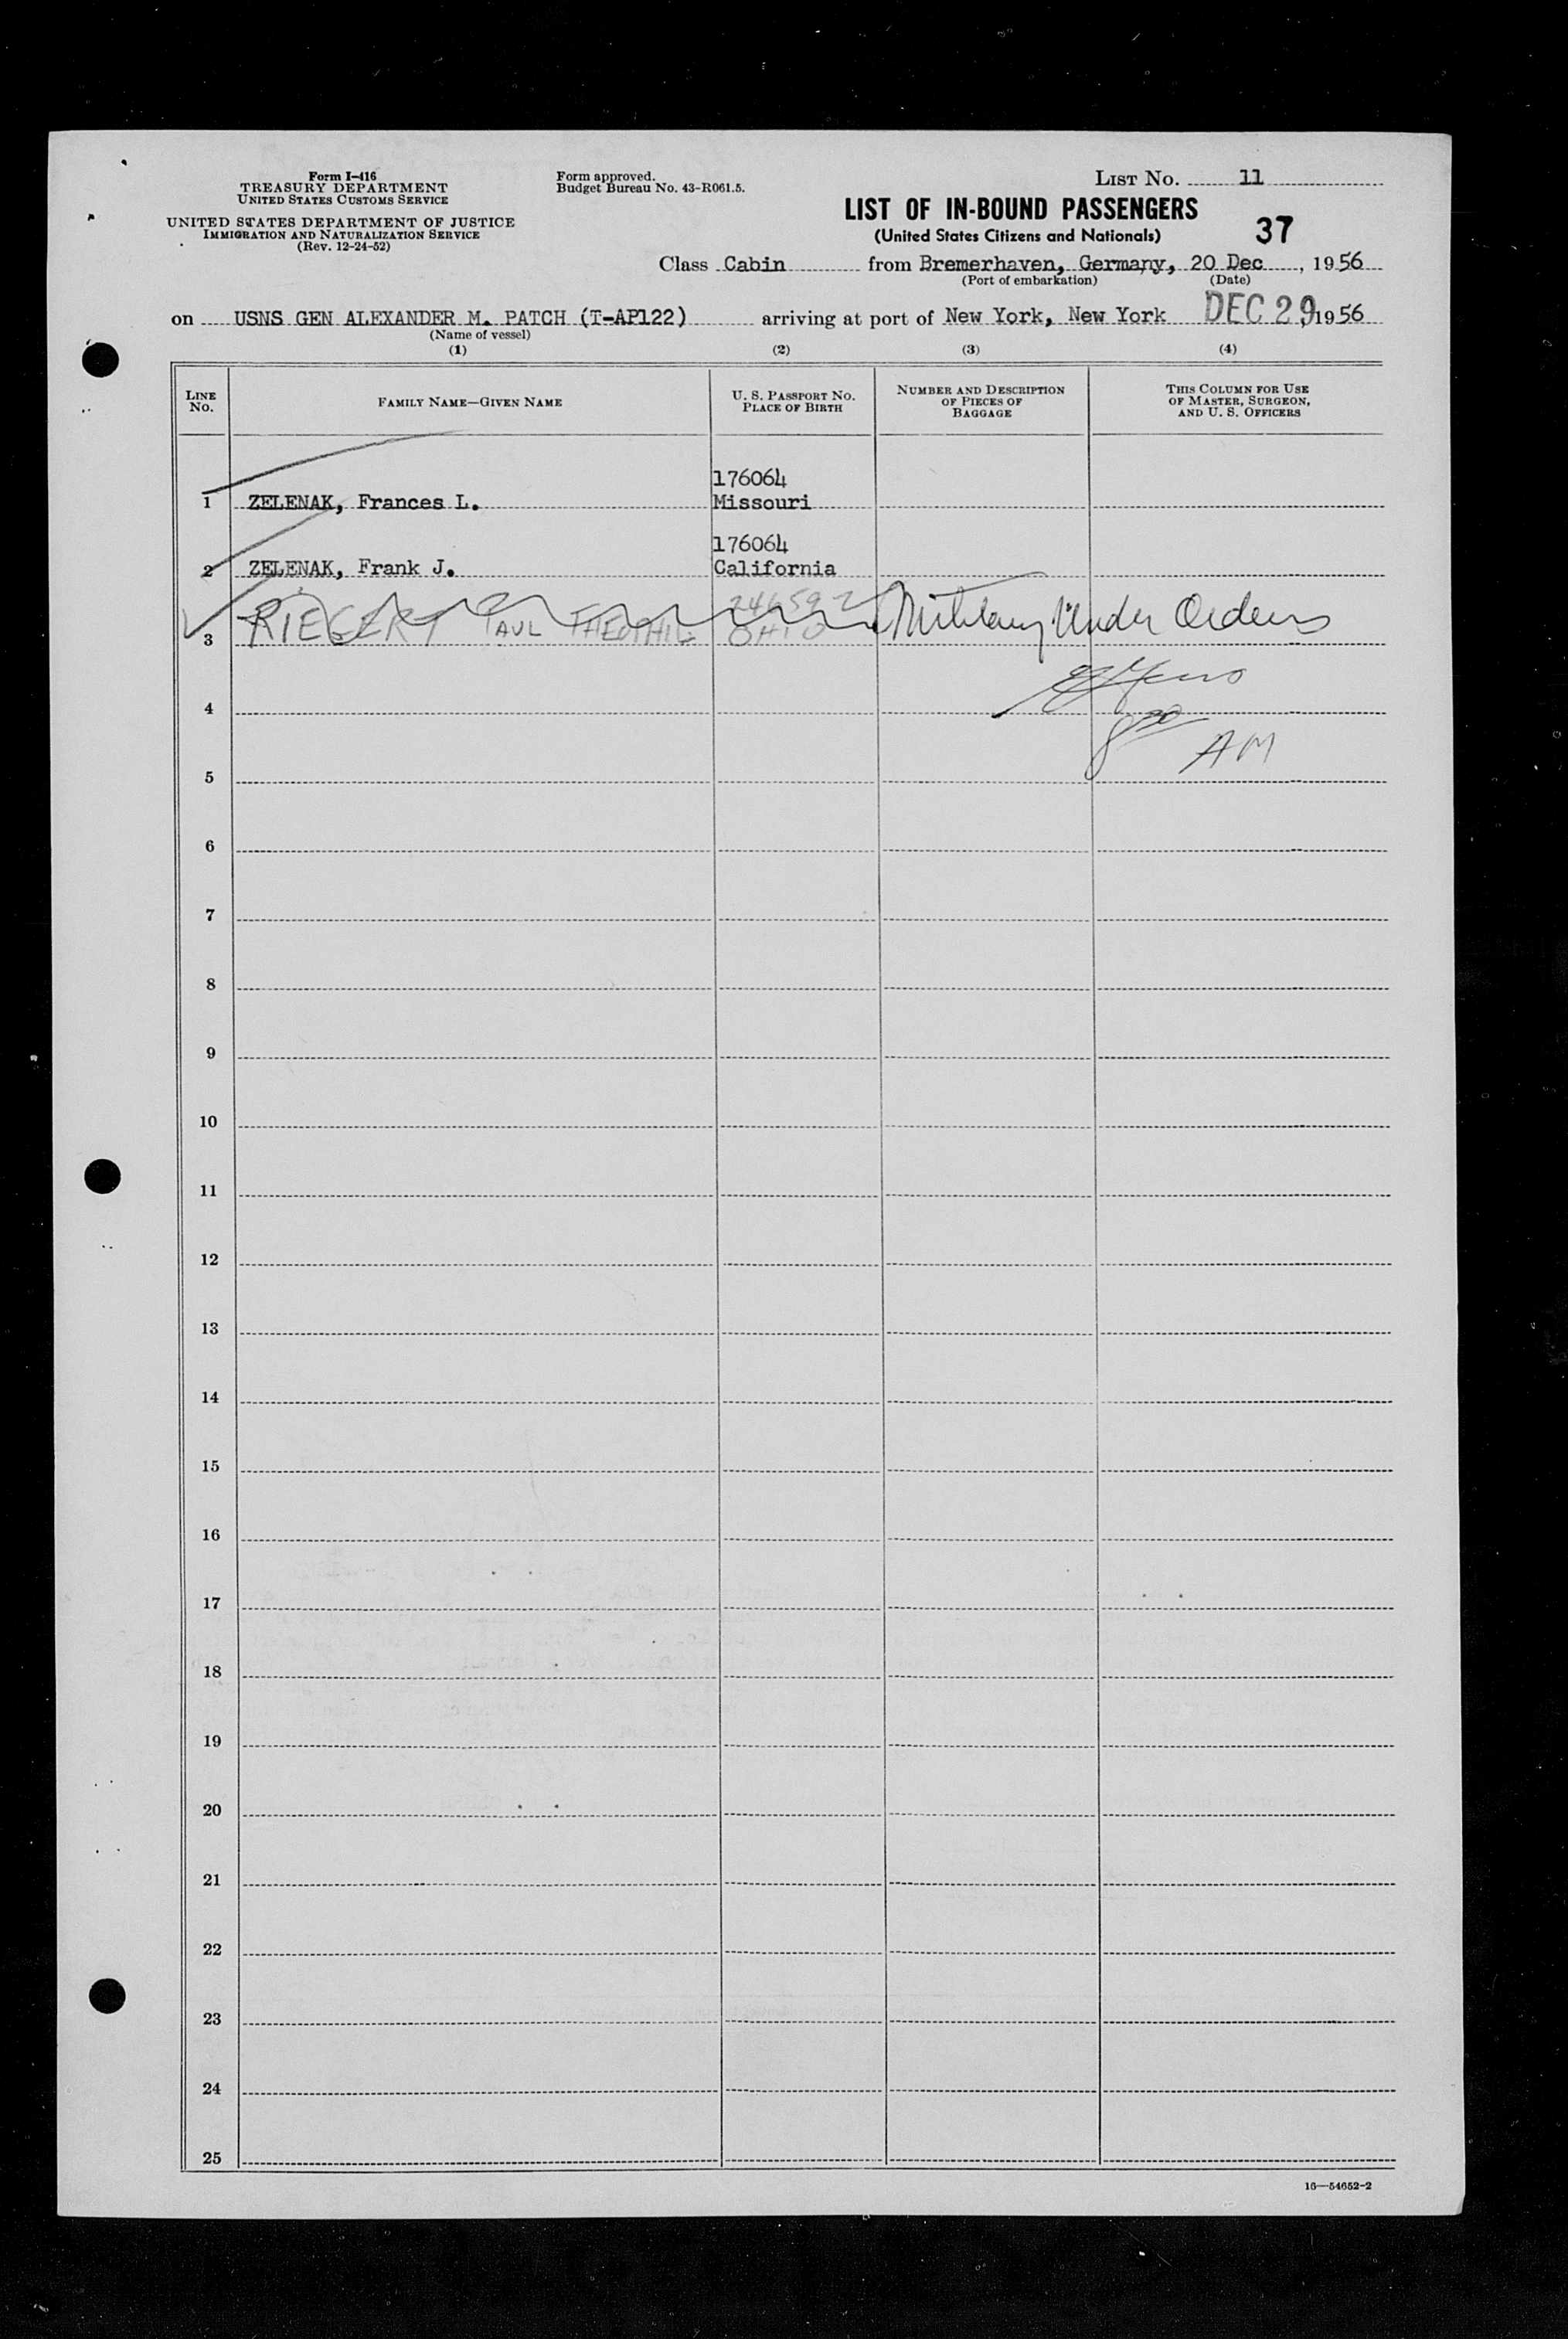 Form I-416
TREASURY DEPARTMENT
UNITED STATES CUSTOMS SERVICE
UNITED STATES DEPARTMENT OF JUSTICE
IMMIGRATION AND NATURALIZATION SERVICE
(Rev. 12-24-52)
Form approved.
Budget Bureau No. 43-R061.5.
LIST NO. 11
LIST OF IN-BOUND PASSENGERS
(United States Citizens and Nationals)
37
Class Cabin from Bremerhaven, Germany, 20 Dec, 1956
(Port of embarkation) (Date)
on USNS GEN ALEXANDER M. PATCH (T-AP122) arriving at port of New York, New York DEC 29 1956
(Name of vessel)
(1) (2) (3) (4)
LINE NO.
FAMILY NAME—GIVEN NAME
U. S. PASSPORT NO.
PLACE OF BIRTH
NUMBER AND DESCRIPTION
OF PIECES OF
BAGGAGE
THIS COLUMN FOR USE
OF MASTER, SURGEON,
AND U. S. OFFICERS
176064
1 ZELENAK, Frances L. Missouri
176064
2 ZELENAK, Frank J. California
246592
3 RIEGERT PAUL THEOPHIL OHIO Military Under Orders
4
AM
5
6
7
8
9
10
11
12
13
14
15
16
17
18
19
20
21
22
23
24
25
16—54652-2